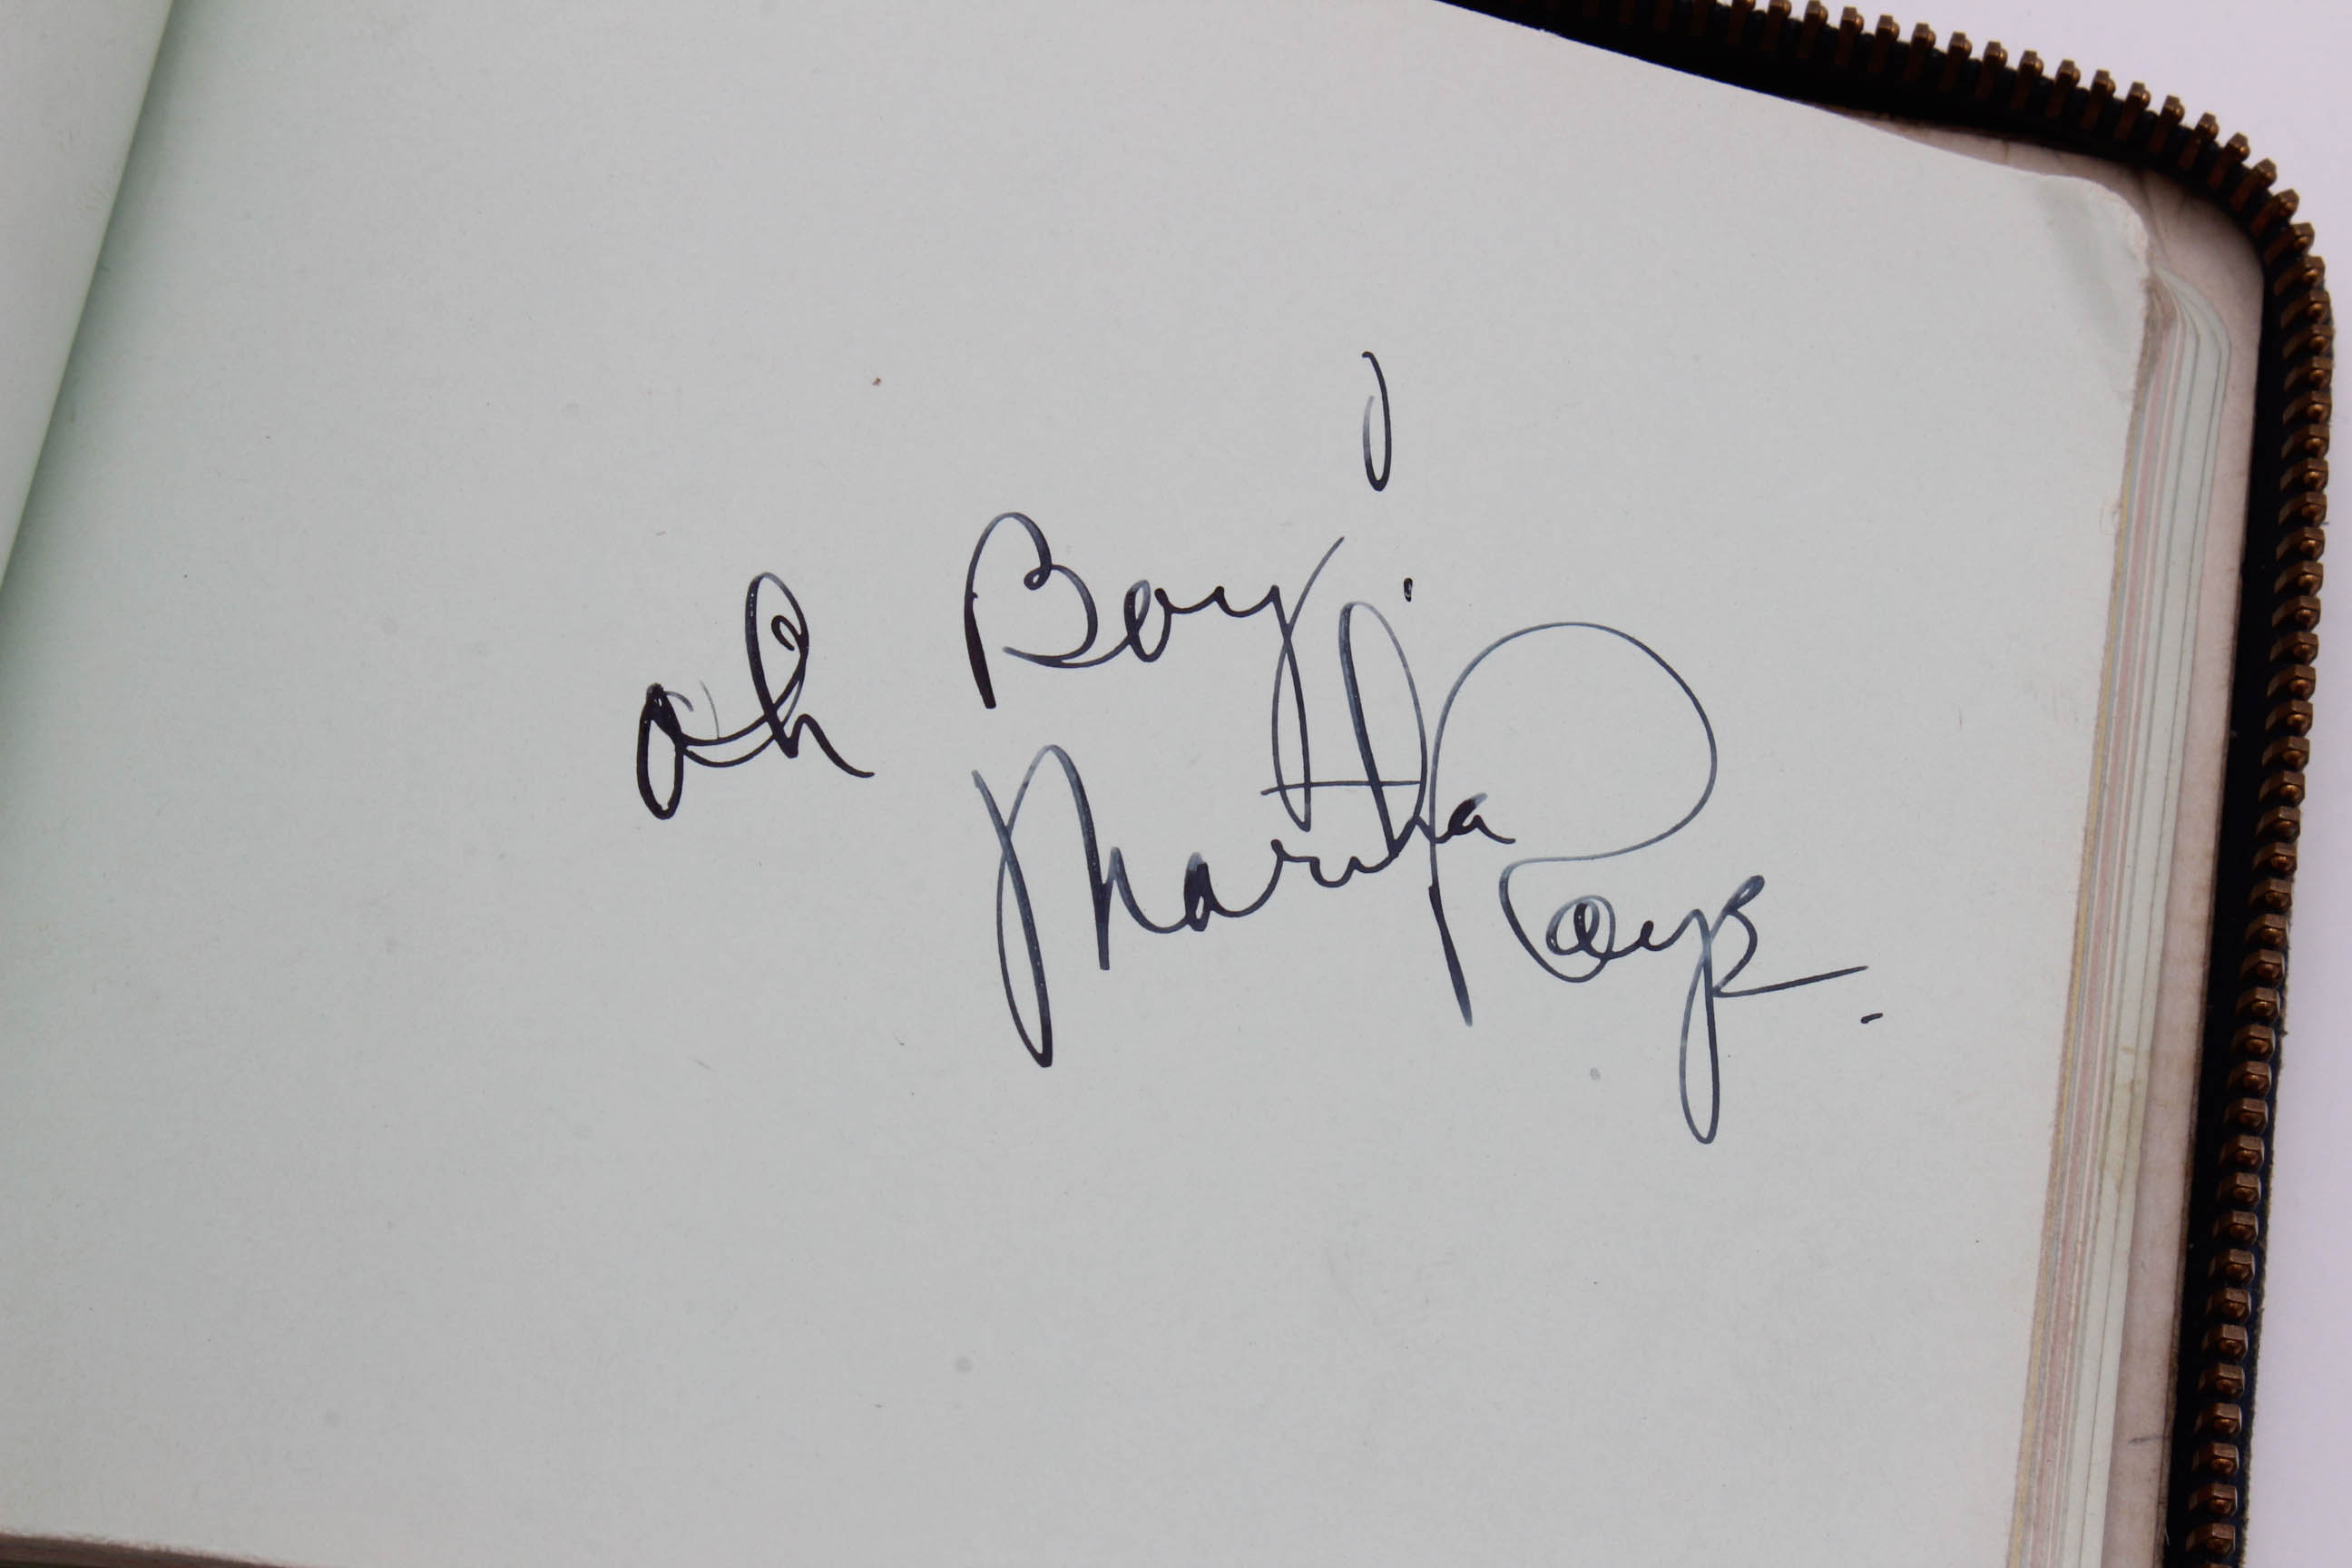 oh Boy!
Martha Raye.